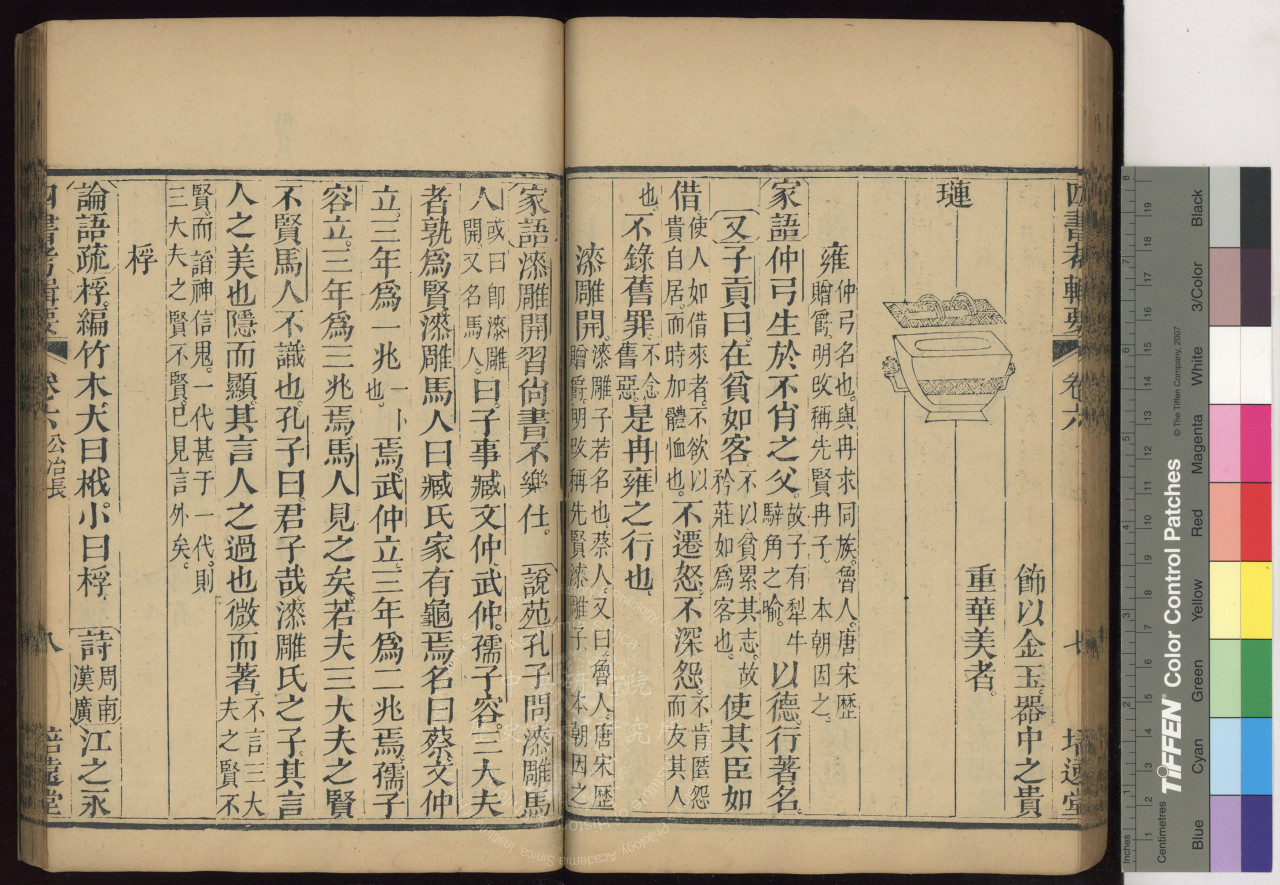 四書考輯要 卷六 七 培遠堂
飾以金玉。器中之貴
重華美者。
璉
雍仲弓名也。與冉求同族。魯人。唐宋歷贈爵。明改稱先賢冉子。本朝因之。
家語仲弓生於不肖之父。故子有犁牛騂角之喻。以德行著名。
又子貢曰。在貧如客不以貧累其志。故矜莊如為客也。使其臣如
借使人如借來者。不欲以貴自居。而時加體恤也。不遷怒。不深怨。不肯匿怨而友其人
也。不錄舊罪。不念舊惡。是冉雍之行也。
漆雕開。漆雕子若名也。蔡人。又曰。魯人。唐宋歷贈爵。明改稱先賢漆雕子。本朝因之
家語漆雕開習尙書不樂仕。說苑孔子問漆雕馬
人。或曰卽漆雕開。又名馬人。曰。子事臧文仲。武仲。孺子容。三大夫
者孰爲賢漆雕馬人曰。臧氏家有龜焉。名曰蔡。文仲
立。三年爲一兆一卜也。焉。武仲立。三年爲二兆焉。孺子
容立。三年爲三兆焉。馬人見之矣。若夫三大夫之賢
不賢。馬人不識也。孔子曰。君子哉漆雕氏之子。其言
人之美也隱而顯。其言人之過也微而著。不言三大夫之賢不
賢。而諂神信鬼。一代甚于一代。則三大夫之賢不賢。已見言外矣。
桴
論語疏桴。編竹木。大曰栰。小曰桴。詩周南漢廣江之永
四書考輯要 卷六 公冶長 八 培遠堂
TIFFEN Color Control Patches
© The Tiffen Company, 2007
Inches
Centimetres
Blue Cyan Green Yellow Red Magenta White 3/Color Black